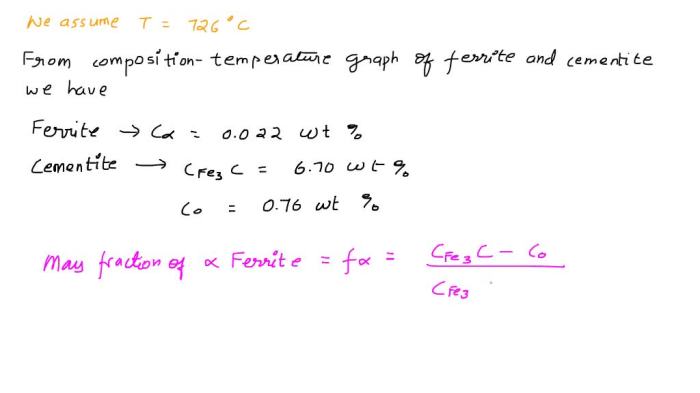 We assume T = 726°C
From composition-temperature graph of ferrite and cementite
we have
Ferrite → Cα = 0.022 wt %
Cementite → CFe₃C = 6.70 wt %
C₀ = 0.76 wt %
Mass fraction of α Ferrite = fα = CFe₃C - C₀
CFe₃